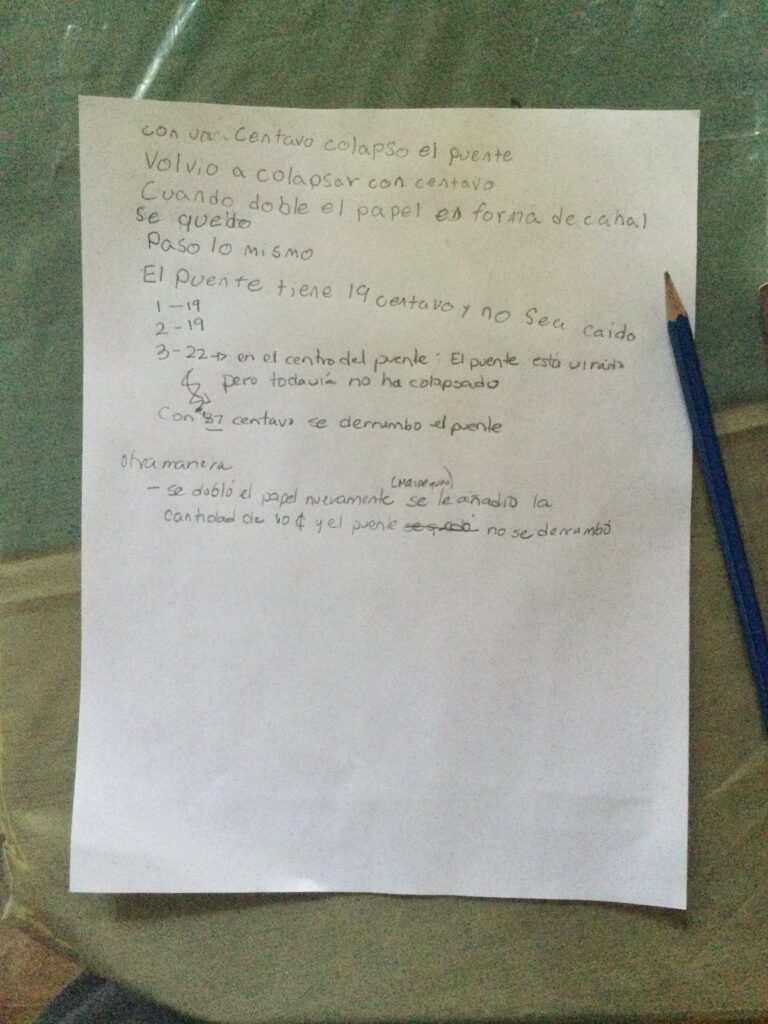 con un centavo colapso el puente
Volvio a colapsar con centavo
Cuando doble el papel en forma de cahal
se quedo
Paso lo mismo
El puente tiene 19 centavo y no sea caido
1-19
2-19
3-22→ en el centro del puente: El puente está virado
pero todavia no ha colapsado
Con 87 centavo se derrumbo el puente
otra manera
- se dobló el papel nuevamente se le añadió la
cantidad de 10 ¢ y el puente no se derrumbó